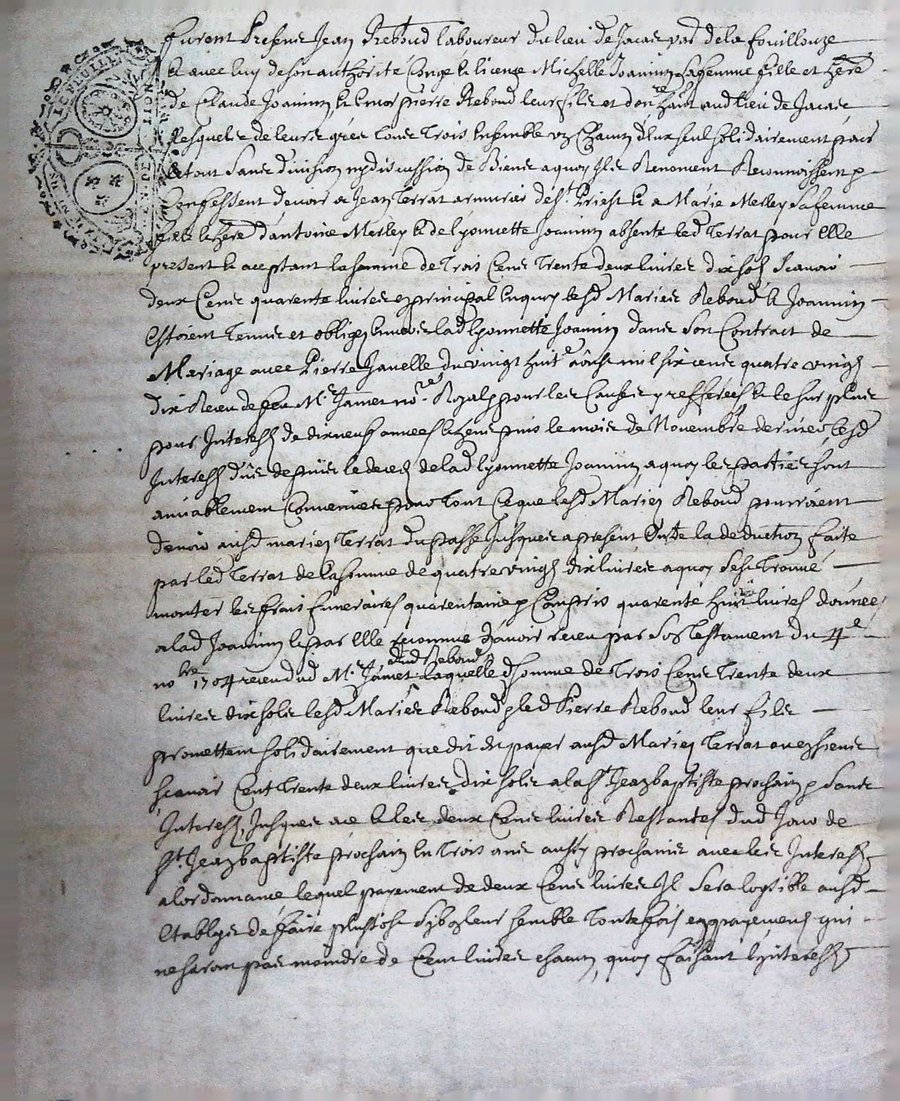 furent presens Jean Reboud laboureur du lieu de Jacas par de la fouillouze
& avec luy de son authorité conge & licence Michelle Joannin sa femme fille et here
de Claude Joannin, & encor pierre Reboud leur fils et donnataire aud lieu de Jacas
lesquels de leurs grez tous trois ensemble un chacun deux seul solidairement pour
le tout sans division ny discussion de biens a quoy ils renoncent Reconnoissent &
Confessent devoir a Jean Terrat armurier de St Priest & a Marie Merley sa femme
fille & here d'antoine Merley & de lyonnette Joannin absente led Terrat pour elle
present & aceptant la somme de Trois Cens Trente deux livres dix sols scavoir
deux Cens quarente livres en principal en quoy lesd Mariés Reboud & Joannin
estoient tenus et obligez envers lad lyonnette Joannin dans son Contract de
Mariage avec Pierre Janelle du vingt huit aoust mil six cens quatre vingt
dix Receu de feu Me Jamet nore Royal pour les causes y refferées & le surplus
pour Interest de dix neuf années echeues puis le mois de Novembre dernier lesd
Interest dus depuis le deced de lad lyonnette Joannin, a quoy les parties sont
amiablement Convenues pour tout ce que lesd Mariez Reboud pourroient
devoir ausd mariez Terrat du passé jusques a present outre la deduction faite
par led Terrat de la somme de quatre vingt dix livres a quoy sest trouvé
monter les frais funeraires quarentaine & Compris quarente huit livres données
a lad Joannin & par elle reconnue d'avoir receu par son Testament du 4e
nobre 1704 receu dud Me Jamet dud Reboud laquelle d somme de trois Cens Trente deux
livres dix sols lesd Mariés Reboud & led Pierre Reboud leur fils
promettent solidairement que dit est payer ausd Mariez Terrat ou ez siens
scavoir Cent Trente deux livres dix sols a la St Jean baptiste prochain & sans
Interest, jusques a ce & les deux Cens livres Restantes dud Jour de
St Jean baptiste prochain en Trois ans aussy prochains avec les Interest
a lordonnance lequel payement de deux Cens livres Il sera loysible ausd
establys de faire plustost sy bon leur semble toutefois en payemens qui
ne seront pas moindre de Cent livres chacun, quoy faisant l'interest